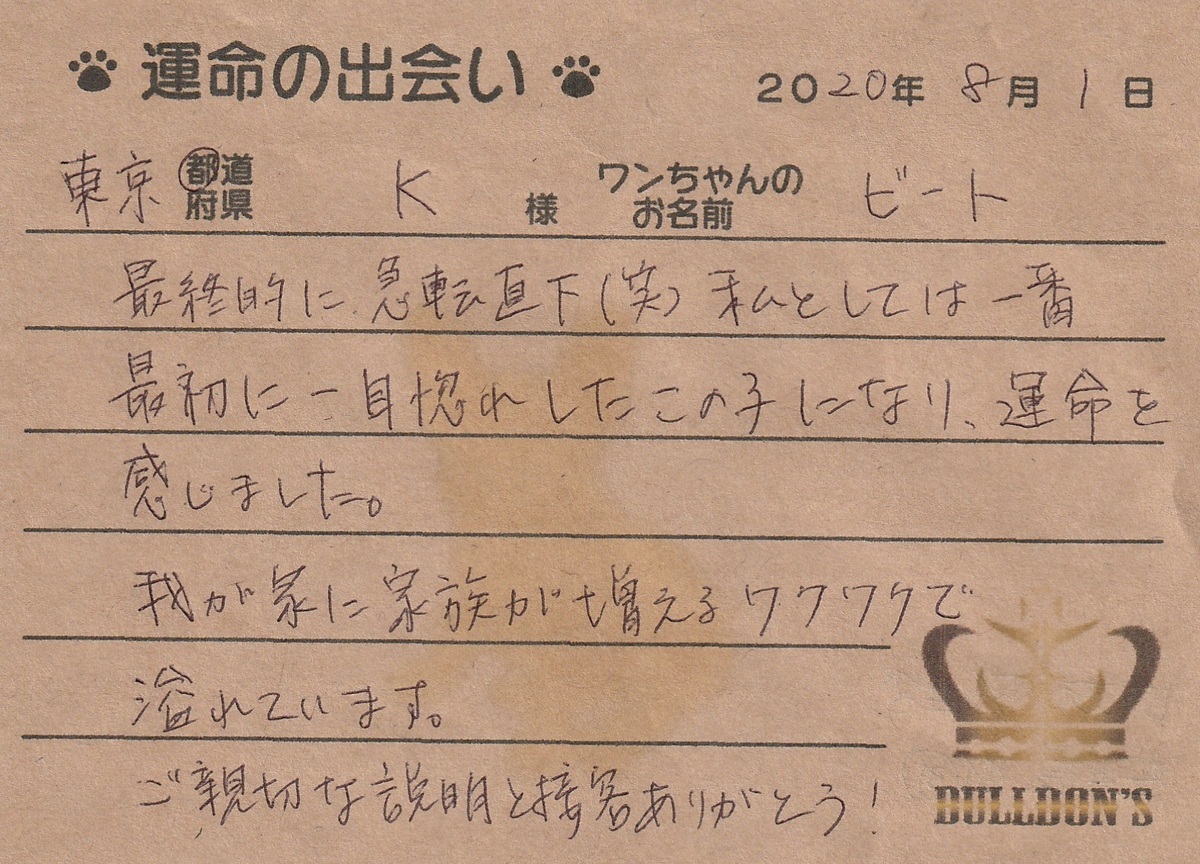 運命の出会い 2020年 8月 1日
東京 都道府県 K 様 ワンちゃんのお名前 ビート
最終的に急転直下(笑) 私としては一番
最初に一目惚れしたこの子になり、運命を
感じました。
我が家に家族が増えるワクワクで
溢れています。
ご親切な説明と接客ありがとう!
BULLDON'S